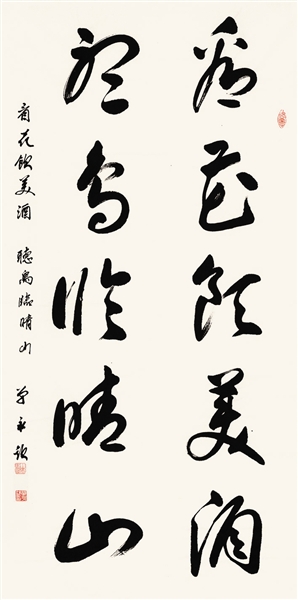 看花飲美酒
聽鳥臨晴山
看花飲美酒 聽鳥臨晴山